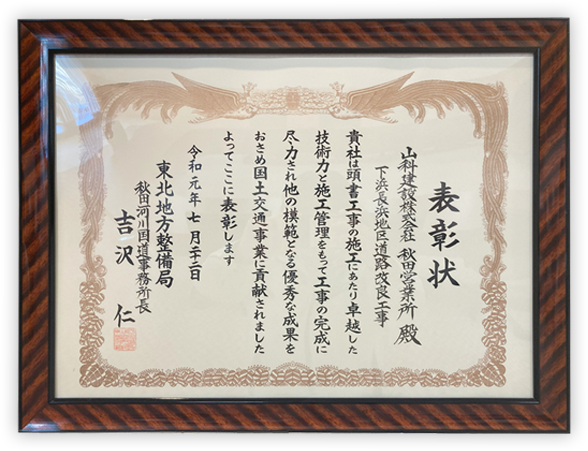 表彰状
山科建設株式会社 秋田営業所 殿
下浜長浜地区道路改良工事
貴社は頭書工事の施工にあたり卓越した
技術力と施工管理をもって工事の完成に
尽力され他の模範となる優秀な成果を
おさめ国土交通事業に貢献されました
よってここに表彰します
令和元年七月二十三日
東北地方整備局
秋田河川国道事務所長
吉沢 仁